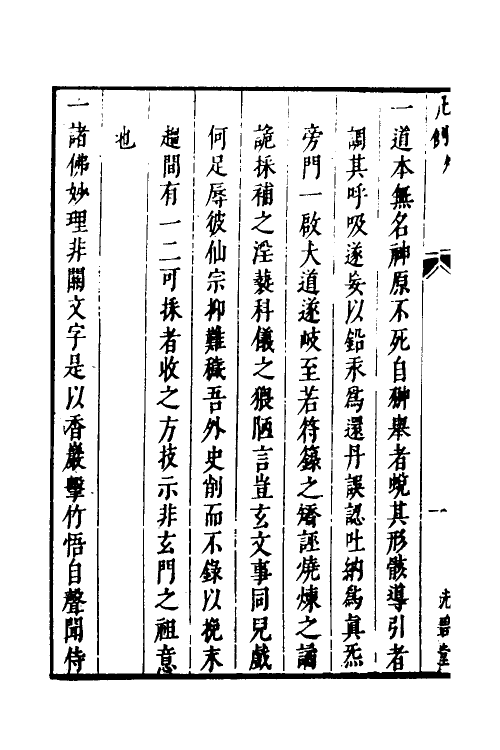 凡例
一
洗碧堂
一道本無名神原不死自翀舉者蛻其形骸導引者
調其呼吸遂妄以鉛汞爲還丹誤認吐納爲真炁
旁門一啟大道遂岐至若符籙之矯誣燒煉之譎
詭採補之淫褻科儀之猥陋言豈玄文事同兒戲
何足辱彼仙宗抑難穢吾外史削而不錄以挽末
趨間有一二可採者收之方技示非玄門之祖意
也
一諸佛妙理非關文字是以香嚴擊竹悟自聲聞侍